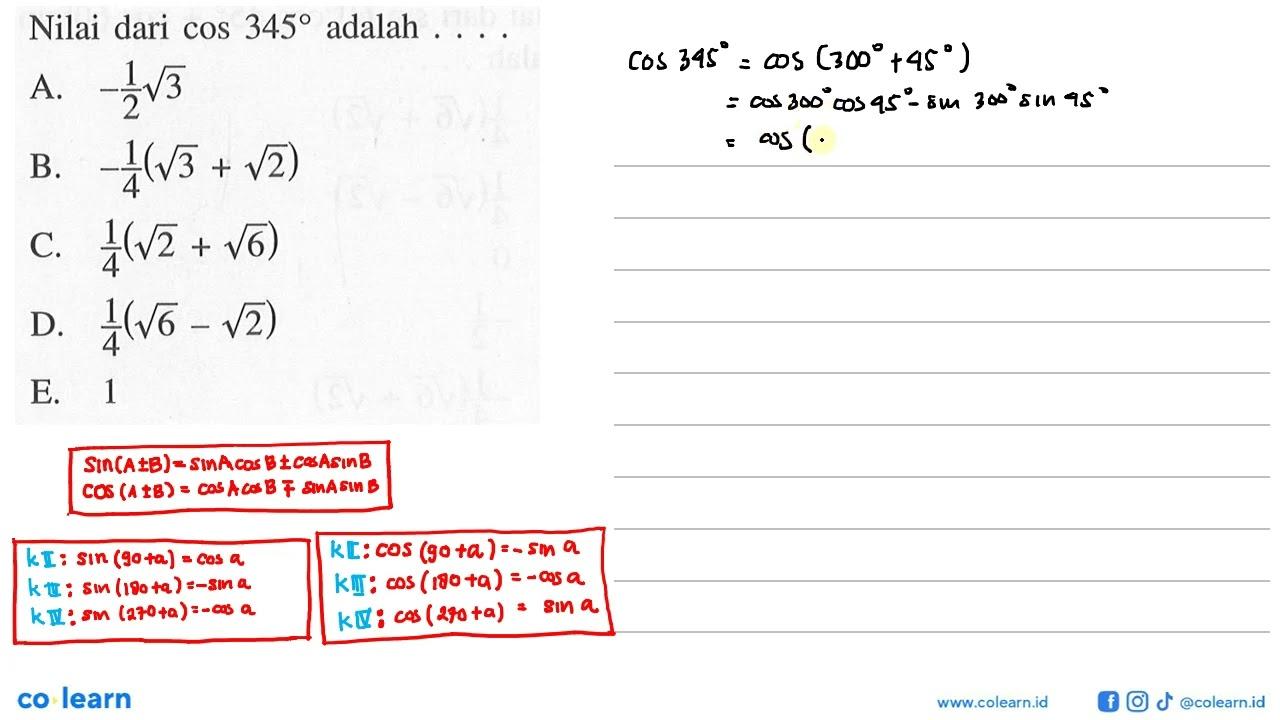 Nilai dari cos 345° adalah . . . .
A. -1/2√3
B. -1/4(√3 + √2)
C. 1/4(√2 + √6)
D. 1/4(√6 - √2)
E. 1
cos 345° = cos (300° + 45°)
= cos 300° cos 45° - sin 300° sin 45°
= cos (.
sin(A±B) = sinA cos B ± cosA sin B
cos (A±B) = cosA cosB ∓ sinA sin B
k II : sin (90+a) = cos a
k III : sin (180+a) = -sin a
k IV : sin (270+a) = -cos a
k II : cos (90+a) = -sin a
k III : cos (180+a) = -cos a
k IV : cos (270+a) = sin a
co learn
www.colearn.id
@colearn.id